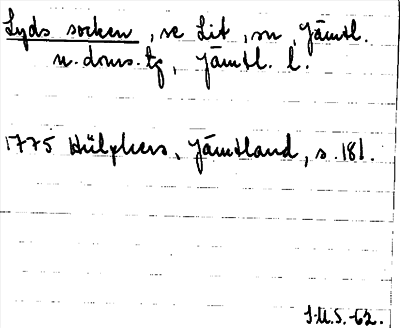 Lyds socken, se Lit, sn, Jämtl.
n. doms. tg, Jämtl. l.
1775 Hülphers, Jämtland, s. 181.
S.U.S. -62.